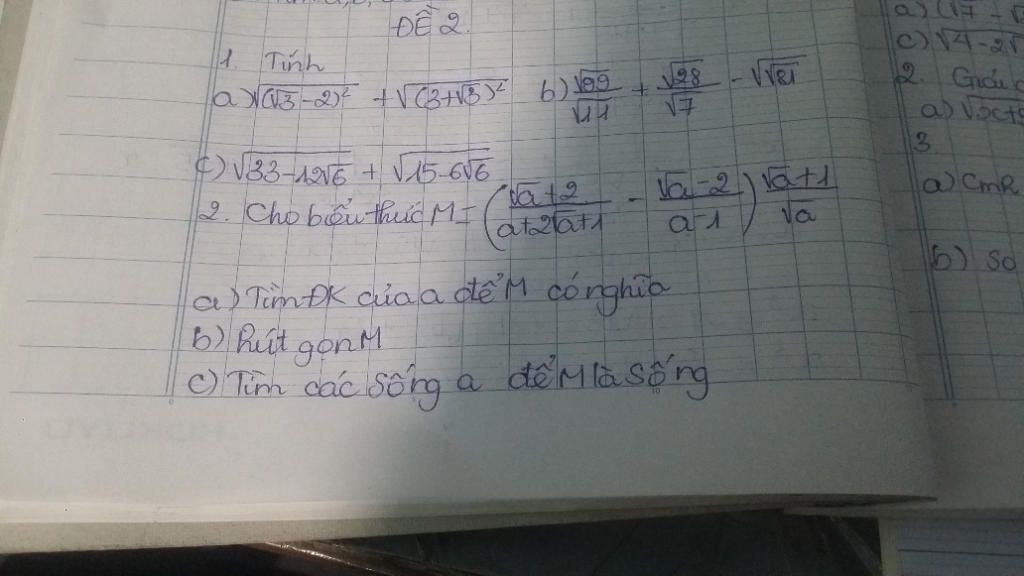 ĐỀ 2.
1. Tính
a) √(√3-2)² + √(3+√3)² b) √99/√11 + √28/√7 - √√81
c) √33-12√6 + √15-6√6
2. Cho biểu thức M = (√a+2/a+2√a+1 - √a-2/a-1) √a+1/√a
a) Tìm ĐK của a để M có nghĩa
b) Rút gọn M
c) Tìm các số ng a để M là số ng
a) (√7 -
c) √4-2√
2. Giải
a) √
3.
a) CmR
b) so